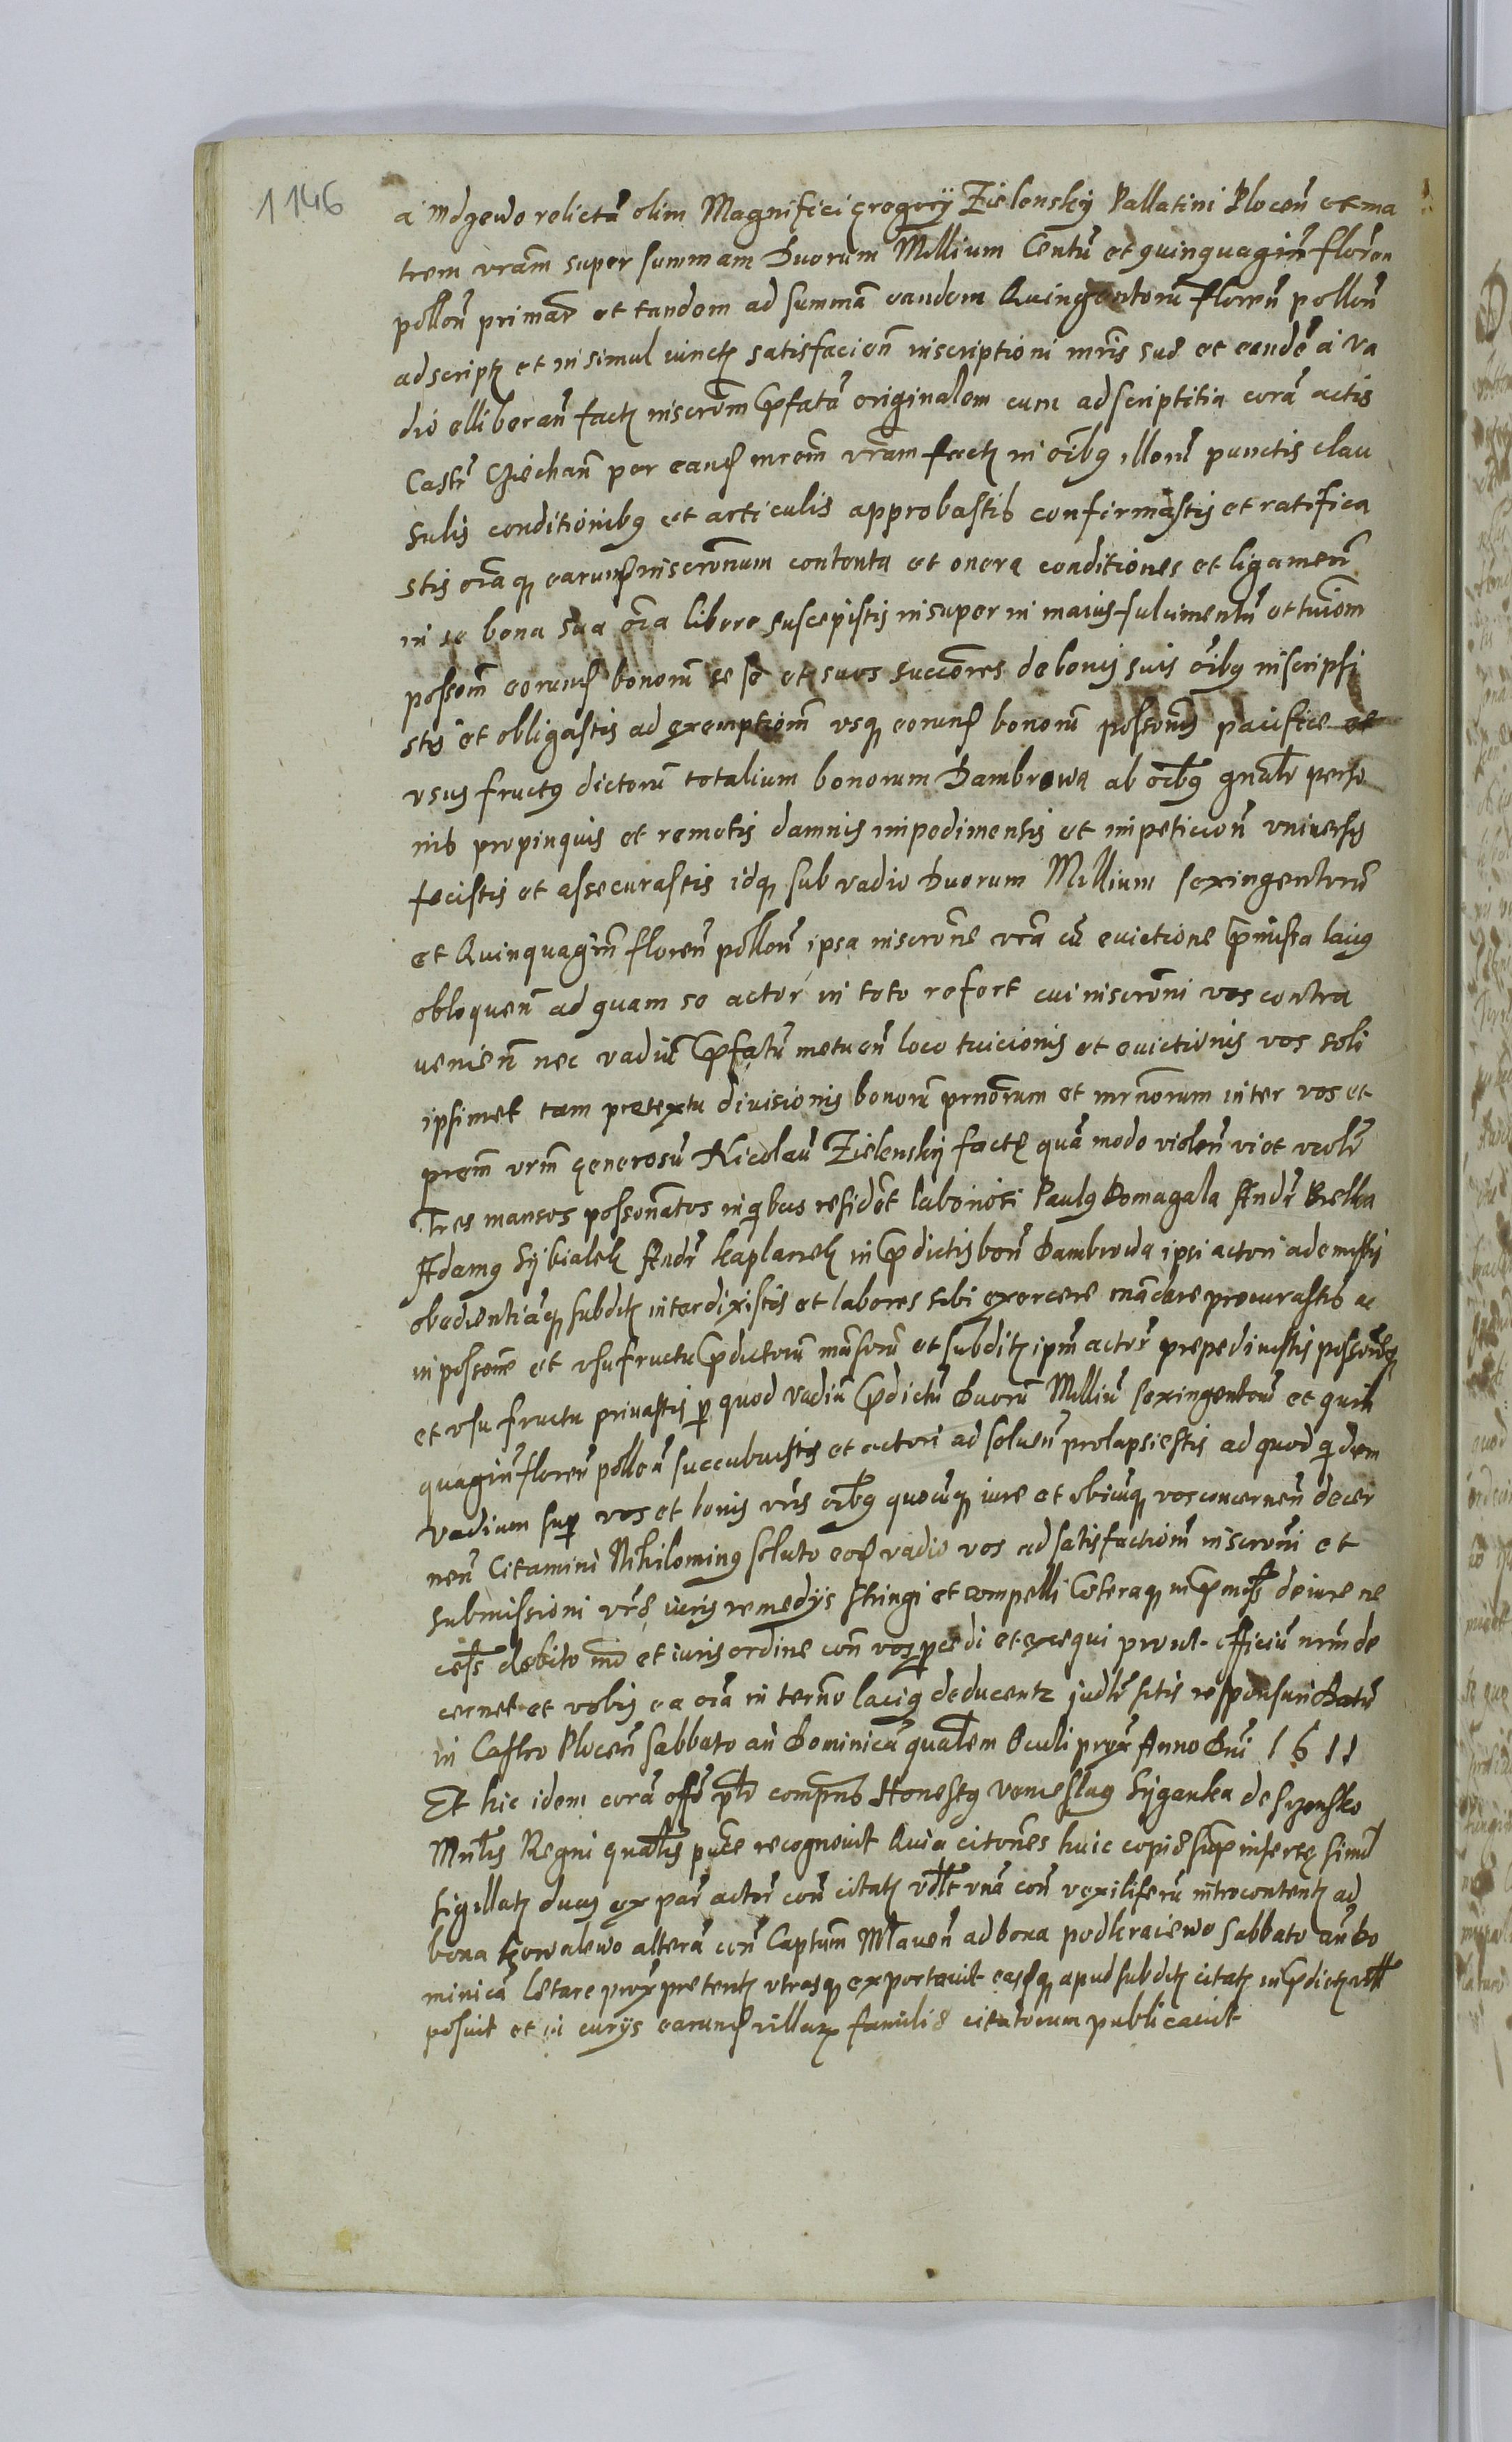 1146
a Mdzewo relictã olim Magnifici Gregorÿ Zielenskÿ Pallatini Plocen̄ et ma
trem vr̄am super summam Duorum Millium Centū et quinquagin̄ floren
pollon̄ primar̄ et tandem ad summã eandem Quingentorū floren̄ pollon̄
adscriptꝫ et insimul iunctꝫ satisfacien̄ inscriptioni mr̄is suæ et eandē a va
dio elliberan̄ factꝫ inscrōm p̄fatã originalem cum adscriptitia corã actis
Castr̄ Cziechan̄ per eand mrem̄ vr̄am factꝫ in oībꝯ illorū punctis clau
sulis conditionibꝯ et articulis approbastis confirmastis et ratifica
stis oīaqꝫ earund inscrōnum contenta et onera conditiones et ligamen̄
in se bona sua oīa libere suscepistis insuper in maius fulcimentū et tuiōm
possōm eorund bonorū se se et suos succōres de bonis suis oībꝯ inscripsi
stis et obligastis ad exemptiōm vsqꝫ eorund bonorū possōnis pacifice et
vsus fructꝯ dictorū totalium bonorum Dambrowa ab oībꝯ gn̄alr perso
nis propinquis et remotis damnis impedimentis et impeticion̄ vniuersis
fecistis et assecurastis idqꝫ sub vadio Duorum Millium sexingentorū
et Quinquagin̄ floren̄ pollon̄ ipsa inscrōne vr̄a cū euictione p̄missa laciꝯ
obloquen̄ ad quam se actor in toto refert cui inscrōni vos contra
uenien̄ nec vadiū p̄fatū metuen̄ loco tuicionis et euictionis vos soli
ipsimet tam pretextu diuisionis bonorū prn̄orum et mrn̄orum inter vos et
frem̄ vrm̄ generosū Nicolaū Zielenskÿ factę quã modo violen̄ vi et violr̄
Tres mansos possōnatos in qbus resident laboriosi Paulꝯ Domagala Andr̄ Brelka
Adamꝯ Sÿbialek Andr̄ kaplanek in p̄dictis bon̄ Dambrowa ipsi actori ademistis
obedientiãqꝫ subditꝫ interdixistis et labores sibi exercere mãdare procurastis ac
in possōne et vsufructu p̄dictorū mãsorū et subditꝫ ipm̄ actor̄ prepediuistis possōneqꝫ
et vsu fructu priuastis p quod vadiū p̄dictū Duorū Milliū sexingentorū et quin
quagin̄ floren̄ pollon̄ succubuistis et actori ad soluen̄ prolapsi estis ad quod qdem
vadium sup vos et bonis vr̄is oībꝯ quocūqꝫ iure et vbicūqꝫ vos concernen̄ decer
nen̄ Citamini Nihilominꝯ soluto eod vadio vos ad satisfactiōm inscrōni et
submissioni vr̄æ iuris remedÿs stringi et compelli Ceteraqꝫ in p̄mis̄s de iure ne
ces̄s debito mō et iuris ordine con̄ vos procedi et exequi prout officiū nr̄m de
cernet et vobis ea oīa in tern̄o laciꝯ deducentꝫ judlr̄ sitis responsuri Datū
in Castro Plocen̄ Sabbato an̄ Dominicã quadlem Oculi prox̄ Anno Dni 1611
Et hic idem corã offo pn̄ti comprns Honestꝯ Venceslaꝯ Sÿganka de Szensko
Mnstr̄lis Regni gnalis pūce recognouit Quia citōnes huic copiæ sup insertę simł
sigillatꝫ duas ex par̄ actor̄ con̄ citatꝫ vdlt vnã con̄ vexiliferū introcontentꝫ ad
bona Kowalewo alterã con̄ Captum̄ Mlauen̄ ad bona podkraiewo Sabbato an̄ Do
minicã Lætare prox̄ pretentꝫ vtrasqꝫ exportauit easqꝫ apud subditꝫ citatꝫ in p̄dictꝫ villis
posuit et in curÿs earund villarꝫ familiæ citatorum publicauit